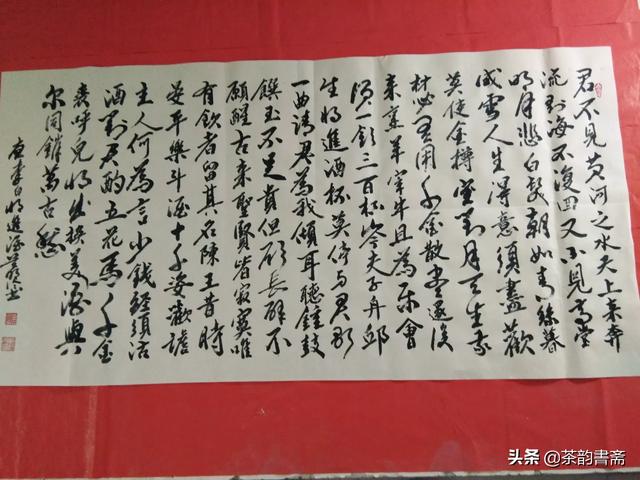 君不見黄河之水天上来奔
流到海不復回又不見高堂
明月悲白髮朝如青絲暮
成雪人生得意須盡歡
莫使金樽空對月天生我
材必有用千金散盡還復
来烹羊宰牛且為樂會
須一飲三百杯岑夫子丹邱
生將進酒杯莫停與君歌
一曲請君為我傾耳聽鐘鼓
饌玉不足貴但願長醉不
願醒古来聖賢皆寂寞唯
有飲者留其名陳王昔時
宴平樂斗酒十千恣歡謔
主人何為言少錢經須沽
酒對君酌五花馬千金
裘呼兒將出換美酒與
尔同銷萬古愁
唐李白將進酒
头条 @茶韵書斋